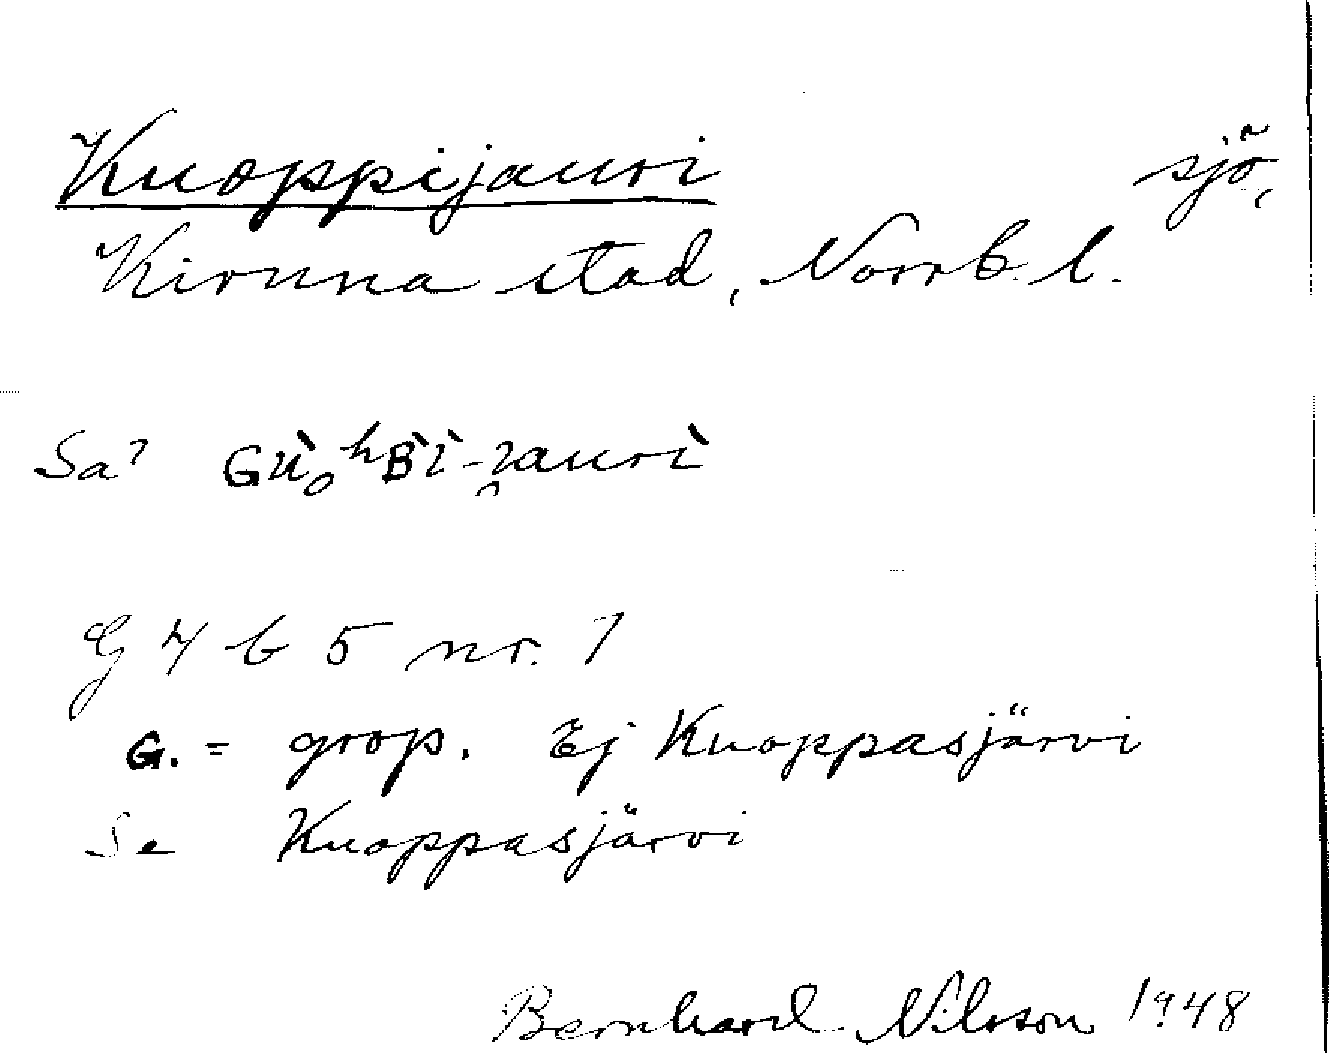 Kuoppijauri sjö,
Kiruna stad, Norrb. l.
Sa? Gùₒʰʙ̀ì-i̯aurì
G 4 b 5 nr. 1
G. = grop. Ej Kuoppasjärvi
Se Kuoppasjärvi
Bernhard Nilsson 1948